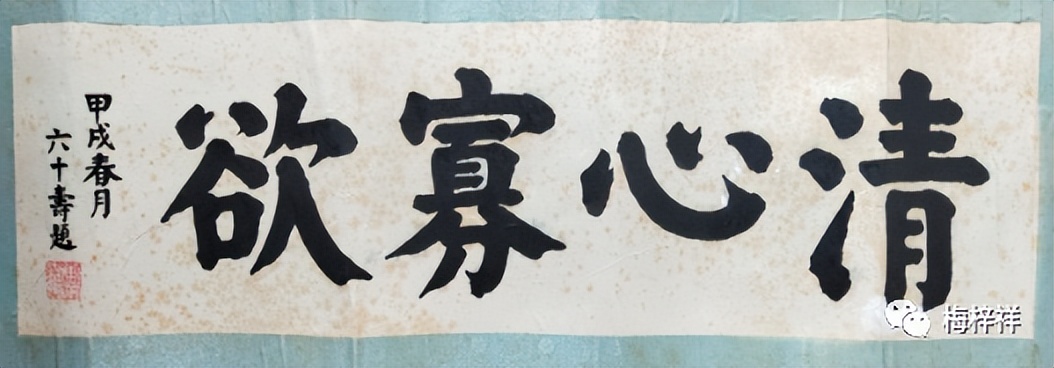 清心寡欲
甲戌春月
六十壽題
梅梓祥